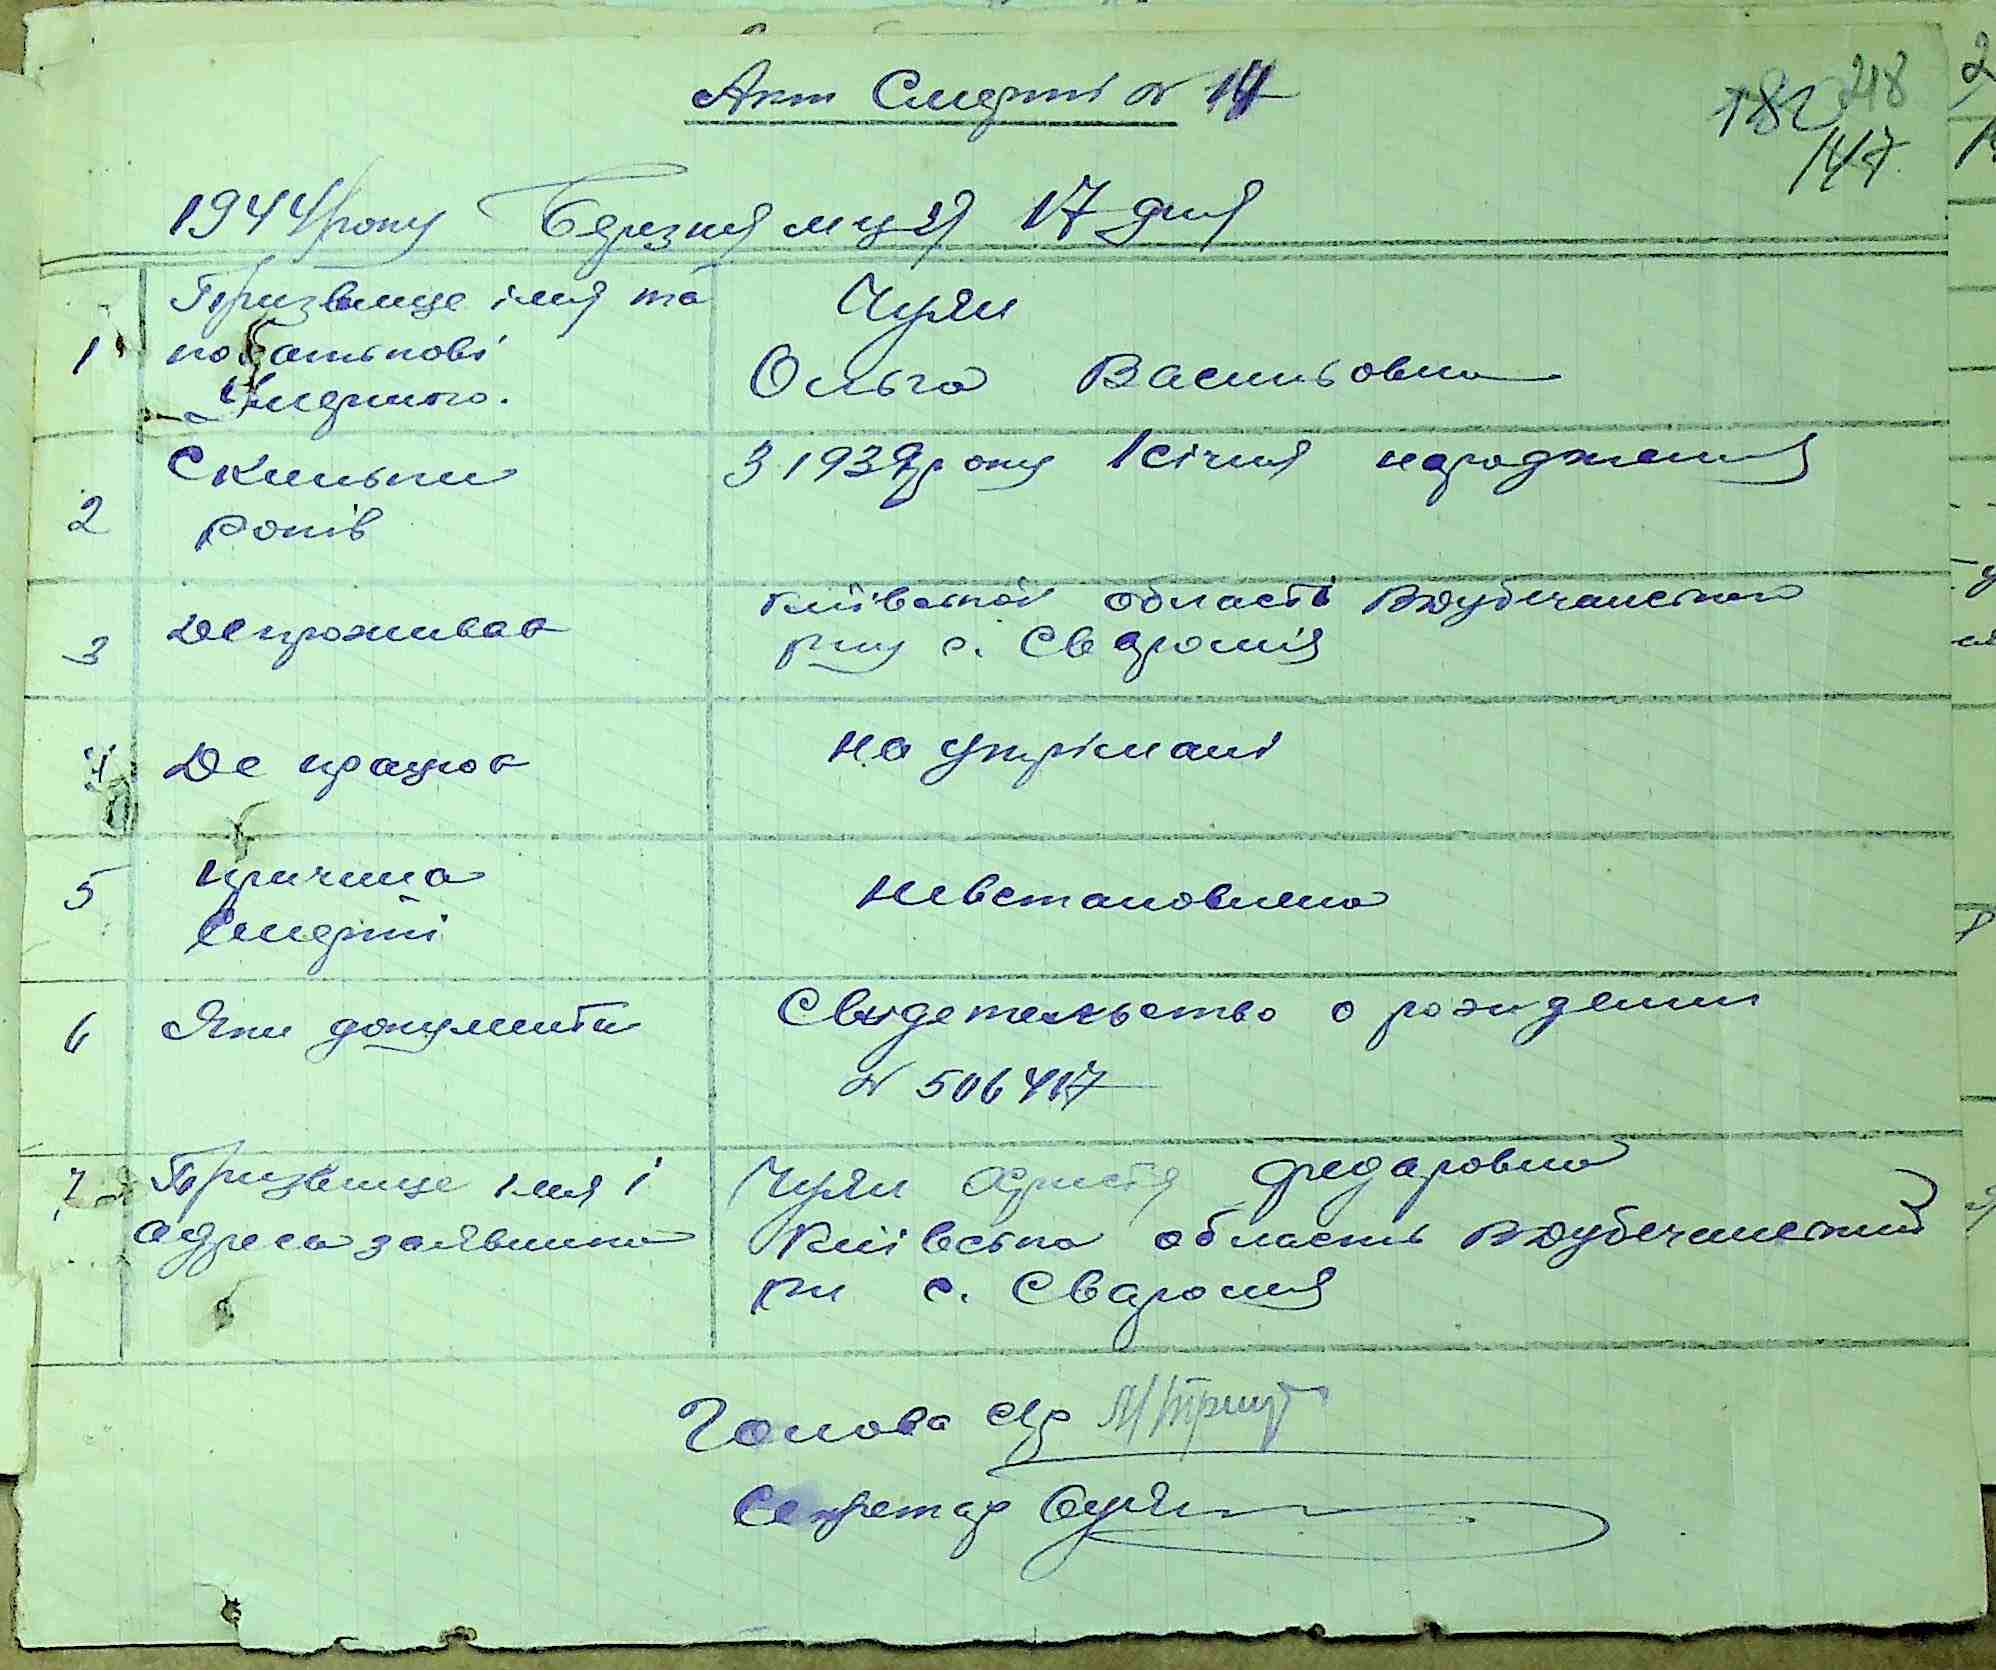 Акт Смерті № 14
218
182
147
1944 року Березня м-ця 17 дня
1 Призвище імя та побатькові Умершого.
Чуян
Ольга Васильовна
2 Скильки років
З 1939 року 1 січня нарождения
3 Де проживав
Київської області В Дубечанського
р-ну с. Сваромія
4 Де працюв
на утрімані
5 причина Смерті
невстановлена
6 Яки документи
Свидетельство о рождении
№ 506417
7 Призвище імя і адреса заявника
Чуян Христя Федаровна
Київська область В Дубечанський
р-н с. Сваромя
Голова с/р
Секретар